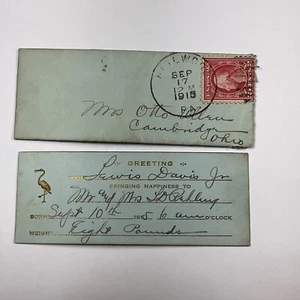 SEP
17
12 M
1915
PA.
Mrs Otto
Cambridge
Ohio
GREETING
Lewis Davis Jr.
BRINGING HAPPINESS TO
Mr and Mrs
Sept 10th 1915 6 am O'CLOCK
WEIGHT Eight Pounds